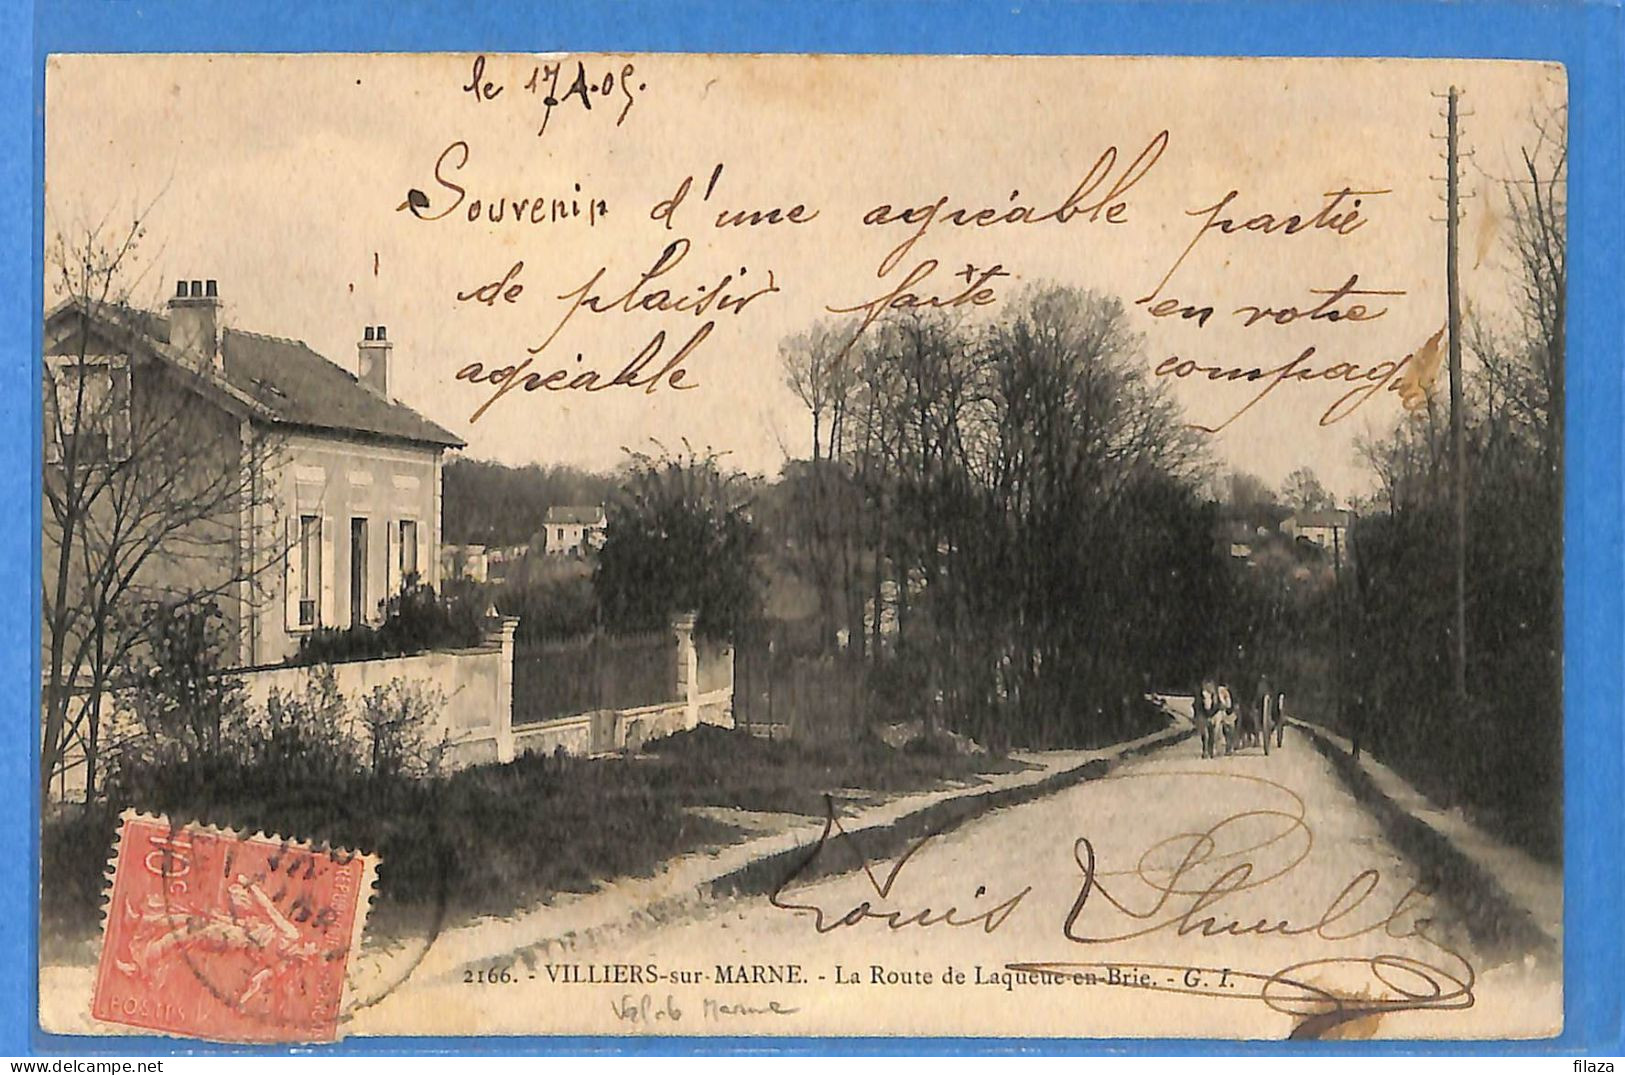 le 17.4.05.
Souvenir d'une agréable partie
de plaisir faite en votre
agréable compagnie
Louis
2166. - VILLIERS-sur-MARNE. - La Route de Laqueue-en-Brie. - G. I.
Val de Marne
10c
POSTES
filaza